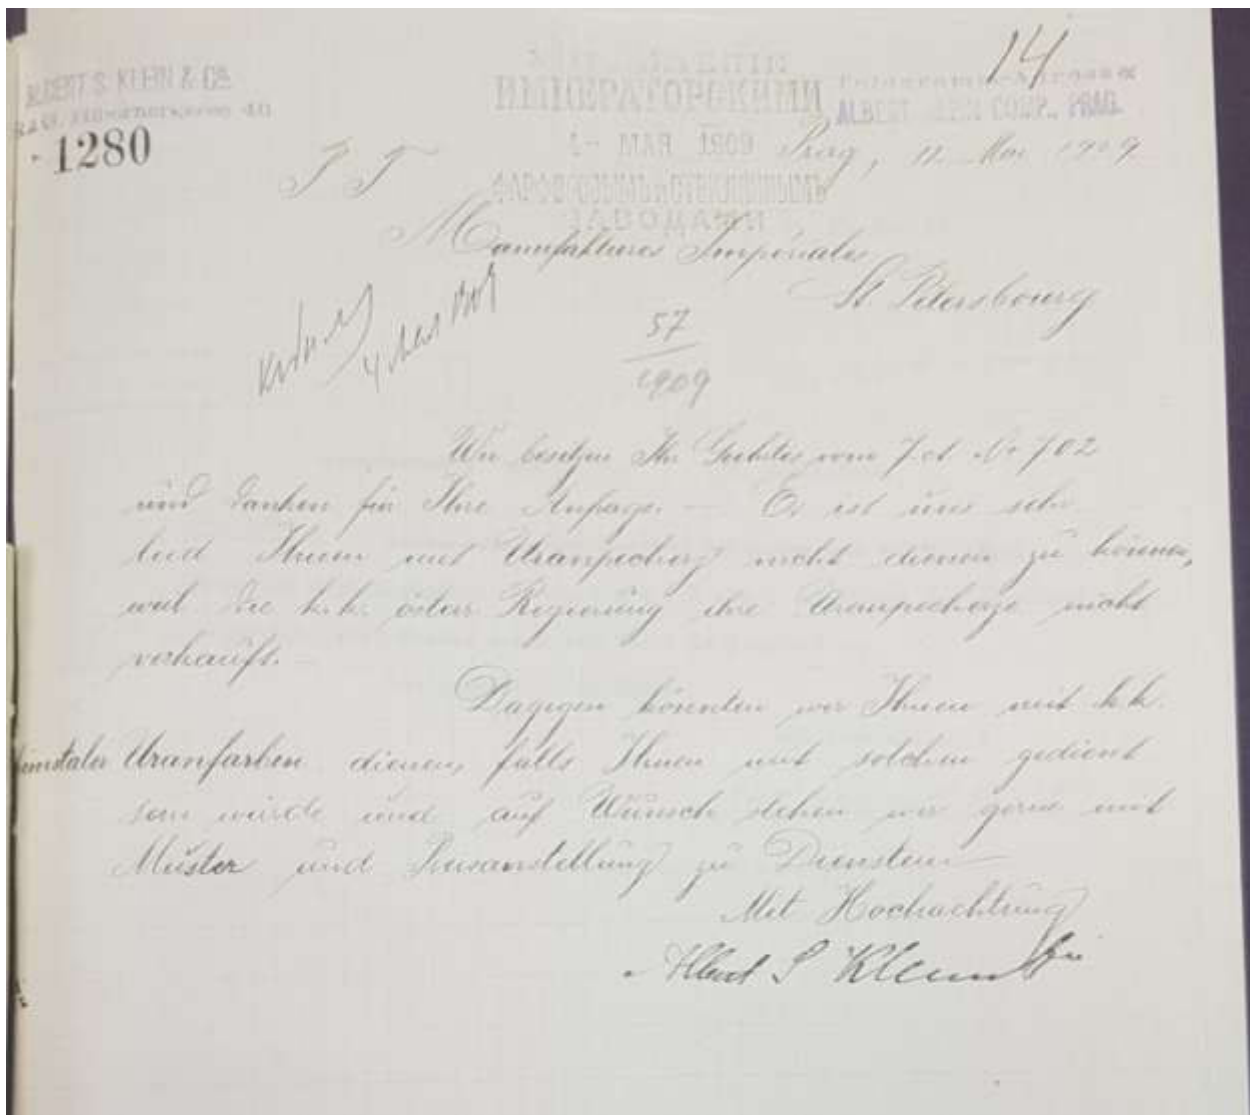 14
ALBERT S. KLEIN & Co.
1280
ИМПЕРАТОРСКИМИ
МАЯ 1909
ФАРФОРОВЫМЪ и СТЕКЛЯННЫМЪ
ЗАВОДАМИ
Telegramm-Adresse
ALBERT KLEIN COMP., PRAG.
Prag, 11. Mai 1909
P T
Manufaktures Imperiales
St. Petersbourg
57
1909
Wir besitzen Ihr Geehrtes vom 7. ct. No 702
und danken für Ihre Anfrage. — Es ist uns sehr
leid Ihnen mit Uranpecherz nicht dienen zu können,
weil die k.k. österr. Regierung ihre Uranpecherze nicht
verkauft. —
Dagegen könnten wir Ihnen mit k.k.
Uranfarben dienen, falls Ihnen mit solchen gedient
sein würde und auf Wunsch stehen wir gerne mit
Muster und Preisanstellung zu Diensten —
Mit Hochachtung
Albert S Klein & Cie